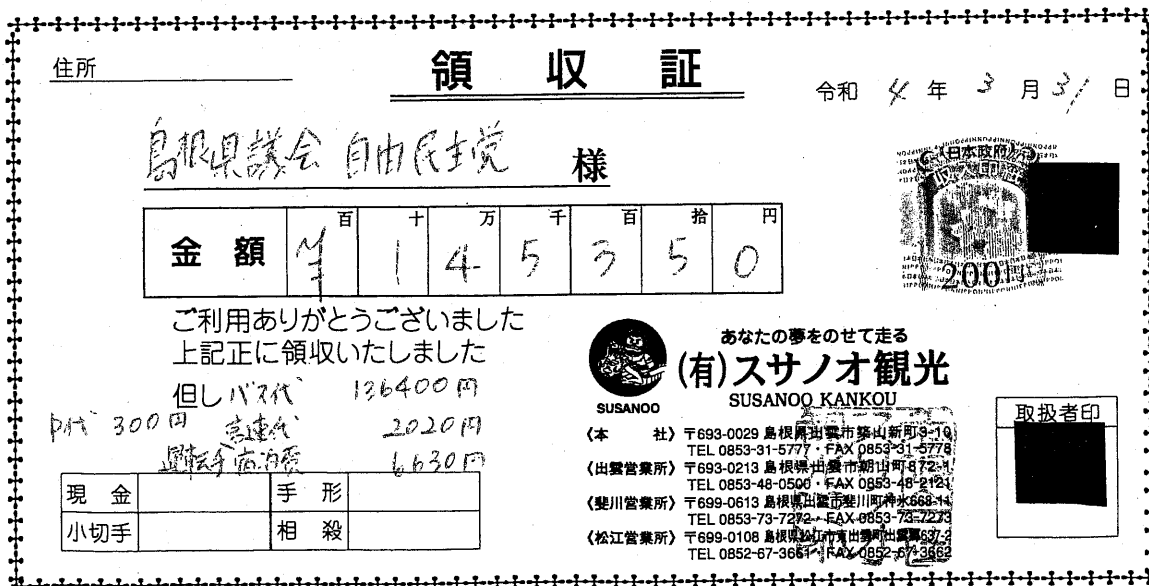 領収証
住所
令和 4 年 3 月 31 日
島根県議会 自由民主党 様
日本政府
収入印紙
200円
金額 百 十 万 千 百 拾 円
¥ 1 4 5 3 5 0
ご利用ありがとうございました
上記正に領収いたしました
但し バス代 136400円
P代 300円 高速代 2020円
運転手宿泊費 6630円
現金 手形
小切手 相殺
SUSANOO
あなたの夢をのせて走る
(有)スサノオ観光
SUSANOO KANKOU
〈本 社〉〒693-0029 島根県出雲市築山新町3-10
TEL 0853-31-5777・FAX 0853-31-5778
〈出雲営業所〉〒693-0213 島根県出雲市朝山町872-1
TEL 0853-48-0500・FAX 0853-48-2121
〈斐川営業所〉〒699-0613 島根県出雲市斐川町神氷668-11
TEL 0853-73-7272・FAX 0853-73-7273
〈松江営業所〉〒699-0108 島根県松江市東出雲町出雲郷637-2
TEL 0852-67-3661・FAX 0852-67-3662
取扱者印